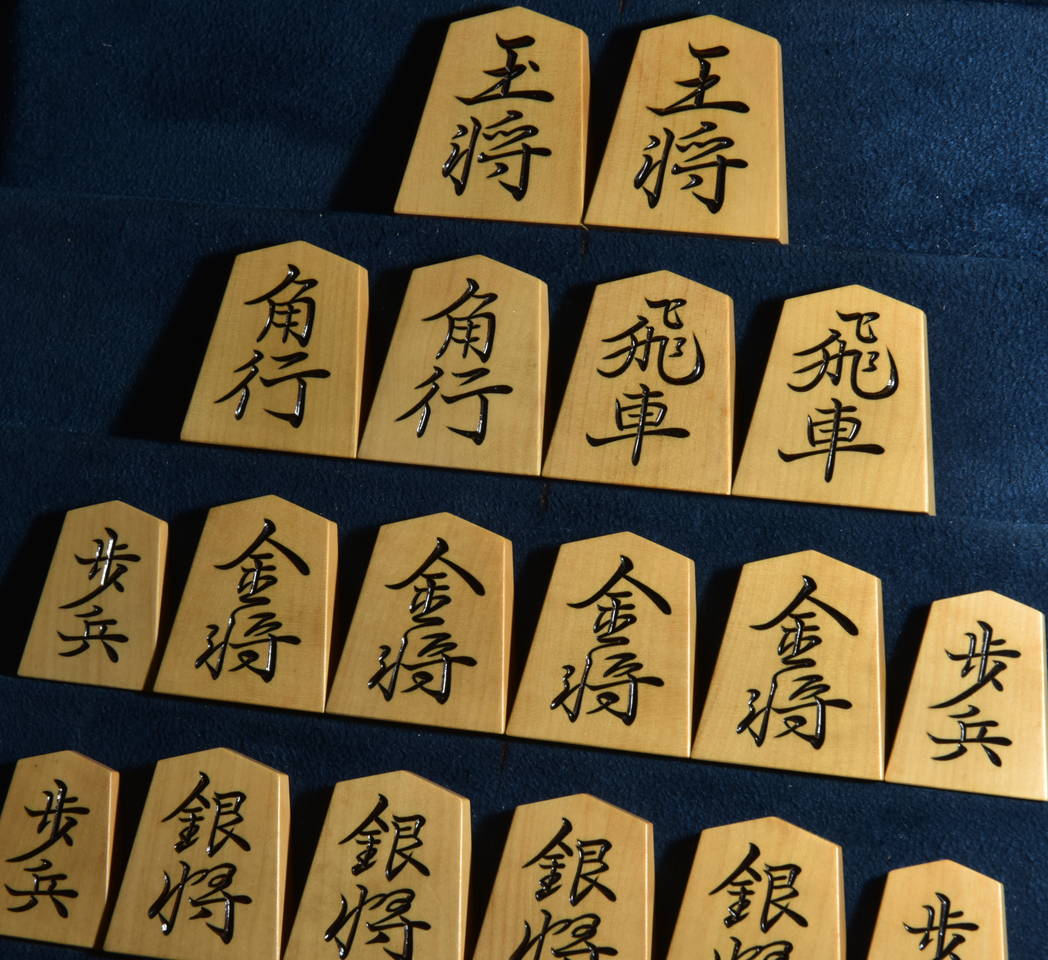 玉将
王将
角行
角行
飛車
飛車
歩兵
金将
金将
金将
金将
歩兵
歩兵
銀将
銀将
銀将
銀将
歩